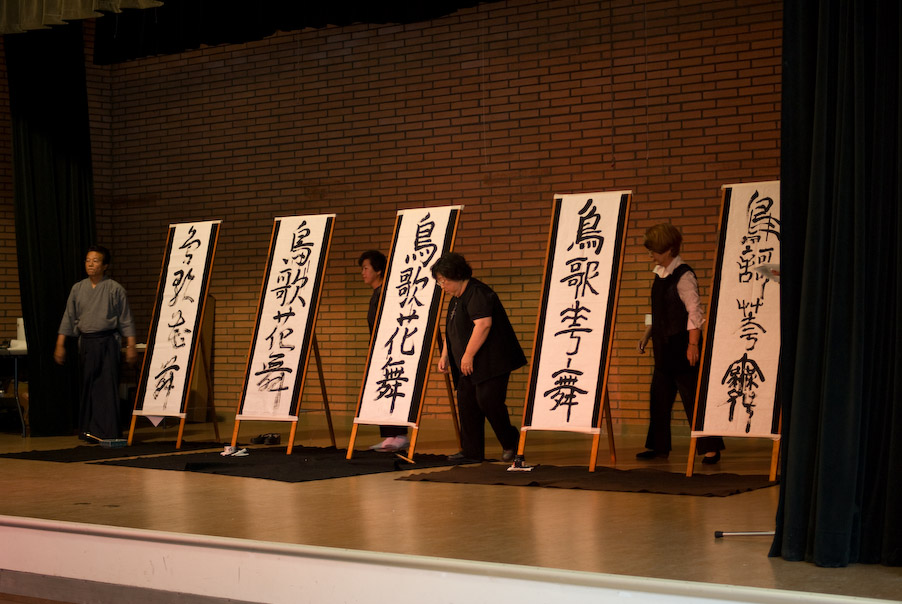 鳥歌花舞
鳥歌花舞
鳥歌花舞
鳥歌華舞
鳥謌華舞